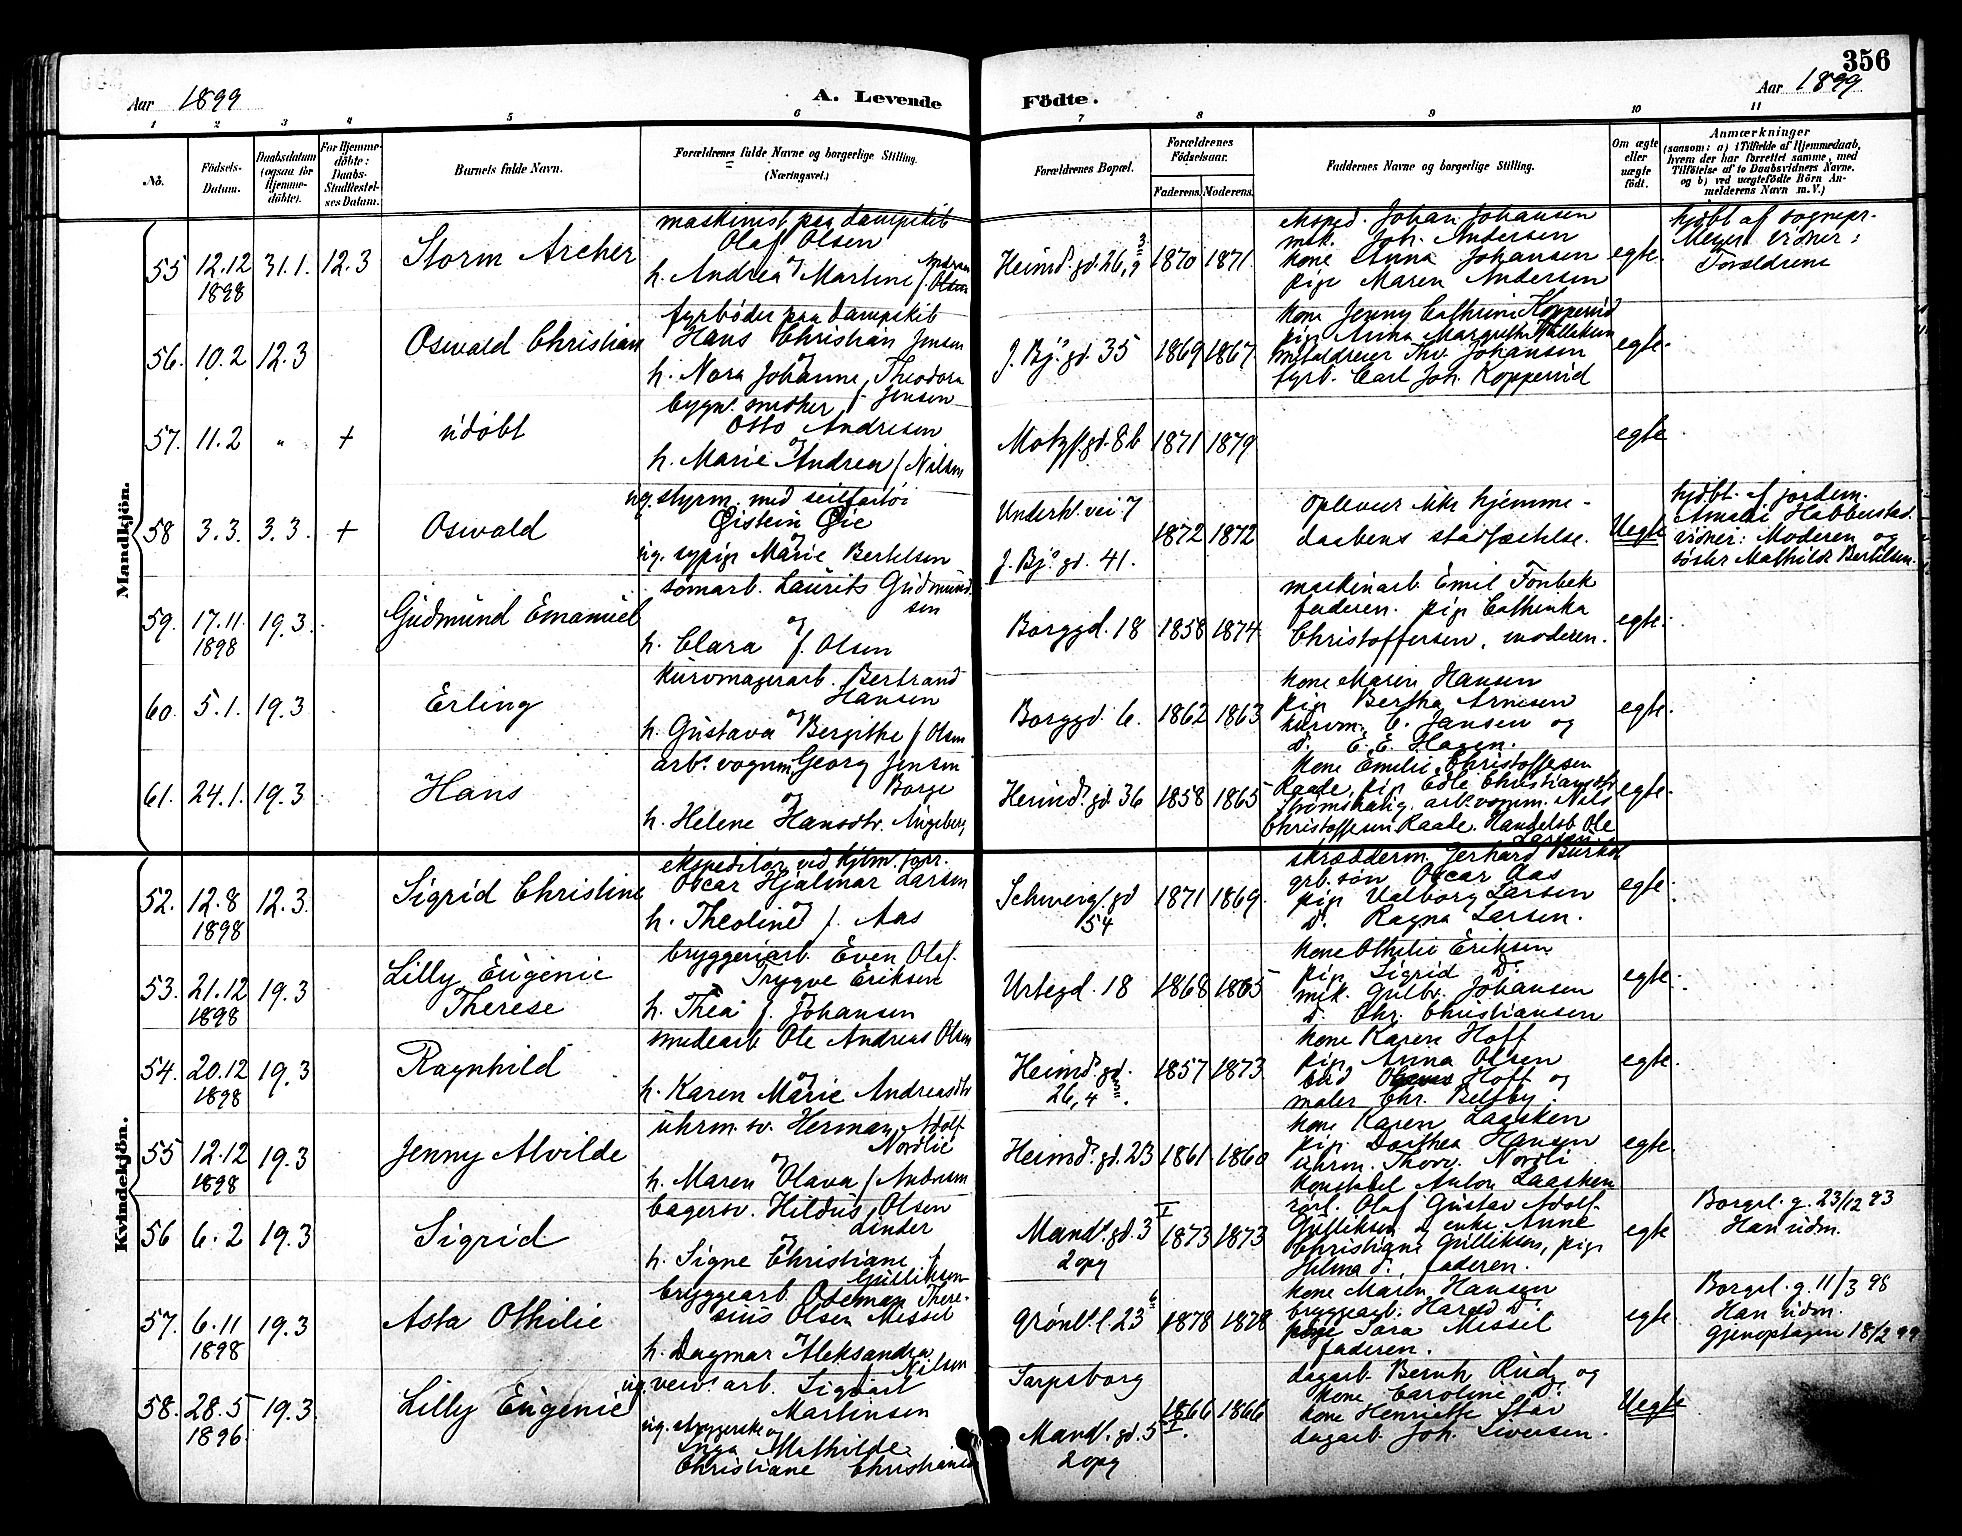 356
Aar 1899
A. Levende
Födte.
Aar 1899
1 2 3 4 5 6 7 8 9 10 11
No.
Födsels-
Datum.
Daabsdatum
(ogsaa for
Hjemme-
döbte).
For Hjemme-
döbte:
Daabs-
Stadfæstel-
ses Datum.
Barnets fulde Navn.
Forældrenes fulde Navne og borgerlige Stilling.
(Næringsvei.)
Forældrenes Bopæl.
Forældrenes
Födselsaar.
Faderens. Moderens.
Faddernes Navne og borgerlige Stilling.
Om ægte
eller
uægte
födt.
Anmærkninger
(saasom: a) i Tilfælde af Hjemmedaab,
hvem der har forrettet samme, med
Tilföielse af to Daabsvidners Navne.
og b) ved uægtefödte Börn An-
melderens Navn m. V.)
Mandkjön.
55 12.12 1898 31.1. 12.3 Storm Archer
maskinist paa dampskib
Olaf Olsen
og
h. Andrea Martine f. Andersen
Heimd. gd. 26, 3/9 1870 1871
eksped. Johan Johansen
mek. Joh. Andersen
kone Anna Johansen
pige Maren Andersen
egte.
hjdbt af sognepr.
Meyer vidner:
Forældrene
56. 10.2 12.3 Oswald Christian
fyrbøder paa dampskib
Hans Christian Jensen
og
h. Nora Johanne Theodora
f. Jensen
J. Bj. gd. 35 1869 1867
kone Jenny Cathrine Kopperud
pige Anna Margrethe Gulliksen
metaldreier Thv. Johansen
fyrb. Carl Joh. Kopperud
egte.
57. 11.2 " + udøbt
bygn. smeker
Otto Andresen
og
h. Marie Andrea f. Nilsen
Motzf. gd. 8b 1871 1879
egte
58 3.3. 3.3. + Oswald
ug. styrm. med seilfartøi
Øistein Øie
og
ug. sypige Marie Bertelsen
Underh. vei 7
J. Bj. gd. 41.
1872 1872
oplever ikke hjemme-
daabens stadfæstelse.
Uegte
hjdbt. af jordem.
Amalie Habberstad.
vidner: Moderen og
søster Mathilde Bertelsen.
59. 17.11. 1898 19.3. Gudmund Emanuel
sømarb. Laurits Gudmund
sen
og
h. Clara f. Olsen
Borggd. 18 1858 1874
maskinarb. Emil Fonbek
faderen. pige Cathinka
Christoffersen, moderen.
egte.
60. 5.1. 19.3 Erling
kurvmagerarb. Bertrand
Hansen
og
h. Gustava Bergithe f. Olsen
Borggd. 6. 1862 1863
kone Maren Hansen
pige Bertha Arnesen
kurvm. C. Jansen og
D. E. E. Hagen.
egte.
61. 24.1. 19.3 Hans
arb. vognm. Georg Jensen
Borge
og
h. Helene Hansdtr. Angeberg
Heimd. gd. 36 1858 1865
kone Emilie Christoffersen
Raade, pige Edle Christiansdtr.
arb. vognm. Nils
Christoffersen Raade. Handelsb. Ole
Larsen
egte.
Kvindekjön.
52. 12.8 1898 12.3. Sigrid Christine
ekspeditør ved Kjbm. forr.
Oscar Hjalmar Larsen
og
h. Theoline f. Aas
Schweig. gd
54
1871 1869
skrædderm. Gerhard
grb. søn Oscar Aas
pige Valborg Larsen
D. Ragna Larsen.
egte.
53. 21.12 1898 19.3 Lilly Eugenie
Therese
bryggeriarb. Even Olaf
Trygve Eriksen
og
h. Thea f. Johansen
Urtegd. 18 1868 1865
kone Othilie Eriksen
pige Sigrid D.
mek. Gulbr. Johansen
D. Chr. Christiansen
egte.
54. 20.12 1898 19.3 Ragnhild
smedarb. Ole Andreas Olsen
og
h. Karen Marie Andreasdtr
Heimd. gd.
26, 4 III.
1857 1873
kone Karen Hoff
pige Anna Olsen
bud Hoff og
maler Chr. Belsby.
egte.
55 12.12 1898 19.3 Jenny Alvilde
uhrm. sv. Herman Adolf
Nordlie
og
h. Maren Olava f. Andersen
Heimd. gd. 23 1861 1860
kone Karen Laasken
pige Dorthea Hansen
uhrm. Thorv. Nordli
konstabel Anton Laasken
egte.
56 6.2 19.3 Sigrid
bagersv. Hildus Olsen
Linder
og
h. Signe Christiane f
Gulliksen
Mand. gd. 3 I
2 opg
1873 1873
rørl. Olaf Gustav Adolf
Gulliksen D. enke Anne
Christiane Gulliksen, pige
Hilma D., faderen.
egte
Borgrl. g. 23/12 93
Han udm.
57. 6.11 1898 19.3 Asta Othilie
bryggearb. Oseman There-
sius Olsen Missel
h. Dagmar Aleksandra
Nilsen
Grønl. l. 23 6 1878 1878
kone Maren Hansen
bryggearb. Harald D.
pige Sara Missel
faderen.
egte.
Borgrl. g. 11/3 98
Han udm.
gjenoptagen 18/2 99
58. 28.5 1896. 19.3 Lilly Eugenie
ug. verv. arb. Sigvart
Martinsen
og
ug. strygerske
Inga Mathilde
Christiane Christiansen
Sarpsborg
Mand. gd. 5 I.
2 opg
1866 1866
dagarb. Bernh Rud og
kone Caroline D.
kone Henriette Star
dagarb. Joh. Siversen.
Uegte